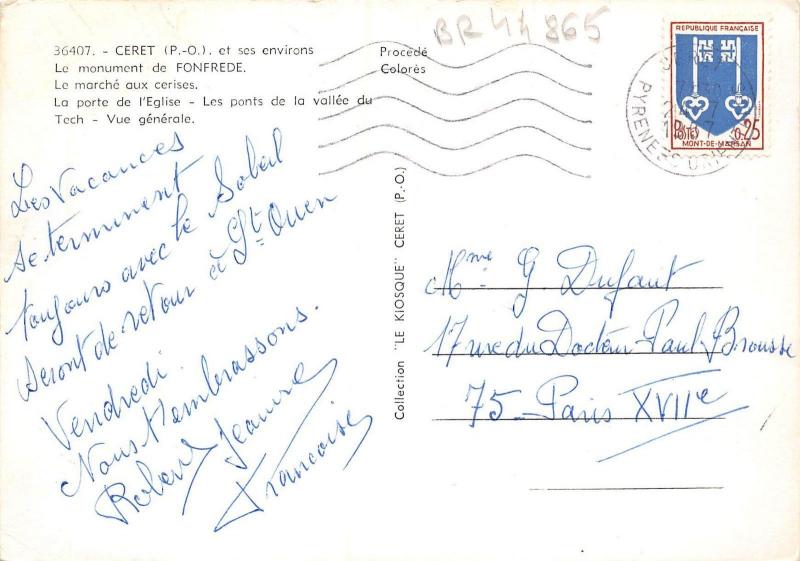 36407. - CERET (P.-O.). et ses environs
Le monument de FONFREDE.
Le marché aux cerises.
La porte de l'Eglise - Les ponts de la vallée du
Tech - Vue générale.
Procédé
Colorès
BR 44 865
REPUBLIQUE FRANÇAISE
POSTES 0,25
MONT-DE-MARSAN
PYRENEES ORIENT
Les Vacances
se terminent
toujours avec le Soleil
Seront de retour à St. Ouen
Vendredi.
Nous t'embrassons.
Robert Jeanine
Francoise
Collection "LE KIOSQUE" CERET (P.-O.)
Mme. G. Dufant
17 rue du Docteur Paul Brousse
75 - Paris XVIIe